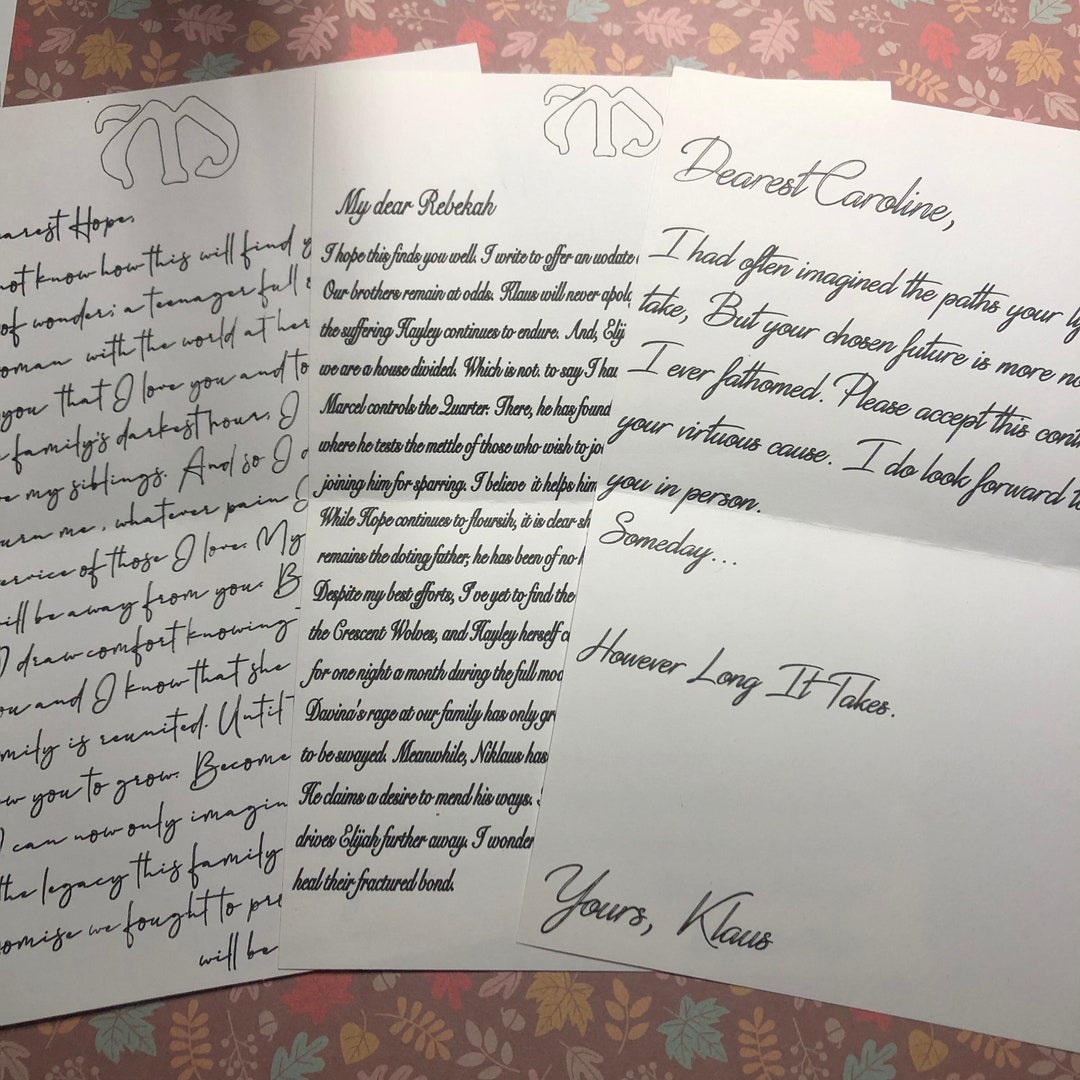 Hope,
not know how this will find
of wonder; a teenager full
with the world at her
you that I love you and to
family's darkest hour. I
my siblings. And so I
me, whatever pain
of those I love. My
will be away from you.
I draw comfort knowing
and I know that she
is reunited. Until
you to grow. Become
I can now only imagin
the legacy this family
we fought to
will be
My dear Rebekah
I hope this finds you well. I write to offer an uodate
Our brothers remain at odds. Klaus will never
the suffering Hayley continues to endure. And,
we are a house divided. Which is not. to say I
Marcel controls the Quarter. There, he has found
where he tests the mettle of those who wish to
joining him for sparring. I believe it helps him
While Hope continues to floursih, it is clear
remains the doting father, he has been of no
Despite my best efforts, I ve yet to find the
the Crescent Wolves, and Hayley herself
for one night a month during the full
Davina's rage at our family has only
to be swayed. Meanwhile, Niklaus has
He claims a desire to mend his ways.
drives Elijah further away. I wonder
heal their fractured bond.
Dearest Caroline,
I had often imagined the paths your
take, But your chosen future is more
I ever fathomed. Please accept this
your virtuous cause. I do look forward
you in person.
Someday...
However Long It Takes.
Yours, Klaus